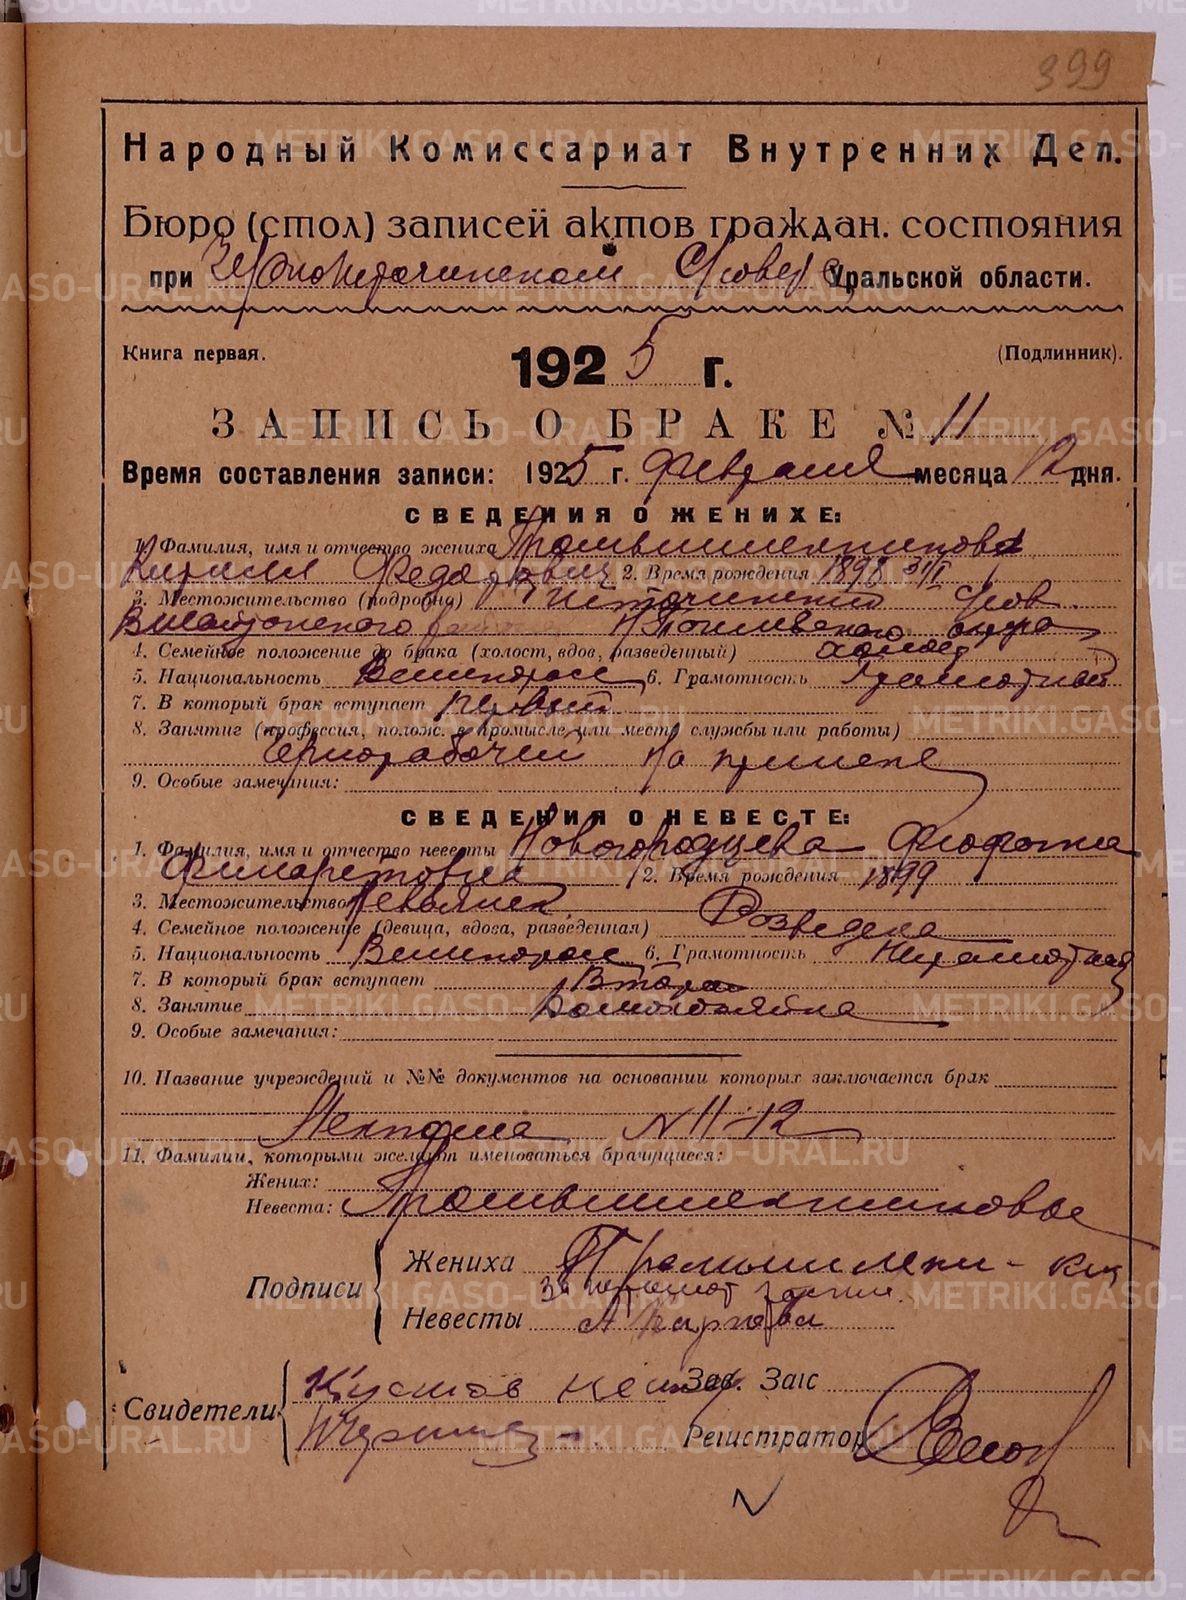 399
Народный Комиссариат Внутренних Дел.
Бюро (стол) записей актов граждан. состояния
при Уральской области.
Книга первая. 1925 г. (Подлинник).
ЗАПИСЬ О БРАКЕ № 11
Время составления записи: 1925 г. февраля месяца 12 дня.
СВЕДЕНИЯ О ЖЕНИХЕ:
1. Фамилия, имя и отчество жениха Промышленников
Кирилл Федорович 2. Время рождения 1898
3. Местожительство (подробно)
округа
4. Семейное положение до брака (холост, вдов, разведенный) холост
5. Национальность Великоросс 6. Грамотность Грамотный
7. В который брак вступает первый
8. Занятие (профессия, полож. в промысле или место службы или работы)
Чернорабочий на прииске
9. Особые замечания:
СВЕДЕНИЯ О НЕВЕСТЕ:
1. Фамилия, имя и отчество невесты Новогородцева
Филаретовна 2. Время рождения 1899
3. Местожительство
4. Семейное положение (девица, вдова, разведенная) Розведена
5. Национальность Великоросс 6. Грамотность Неграмотная
7. В который брак вступает Второй
8. Занятие Домохозяйка
9. Особые замечания:
10. Название учреждений и №№ документов на основании которых заключается брак
N 11-12
11. Фамилии, которыми желают именоваться брачущиеся:
Жених:
Невеста: Промышленниковы
Подписи
Жениха Промышлени-
За неграмот
Невесты А Карпова
Свидетели
Зав. Загс
Регистратор
METRIKI.GASO-URAL.RU